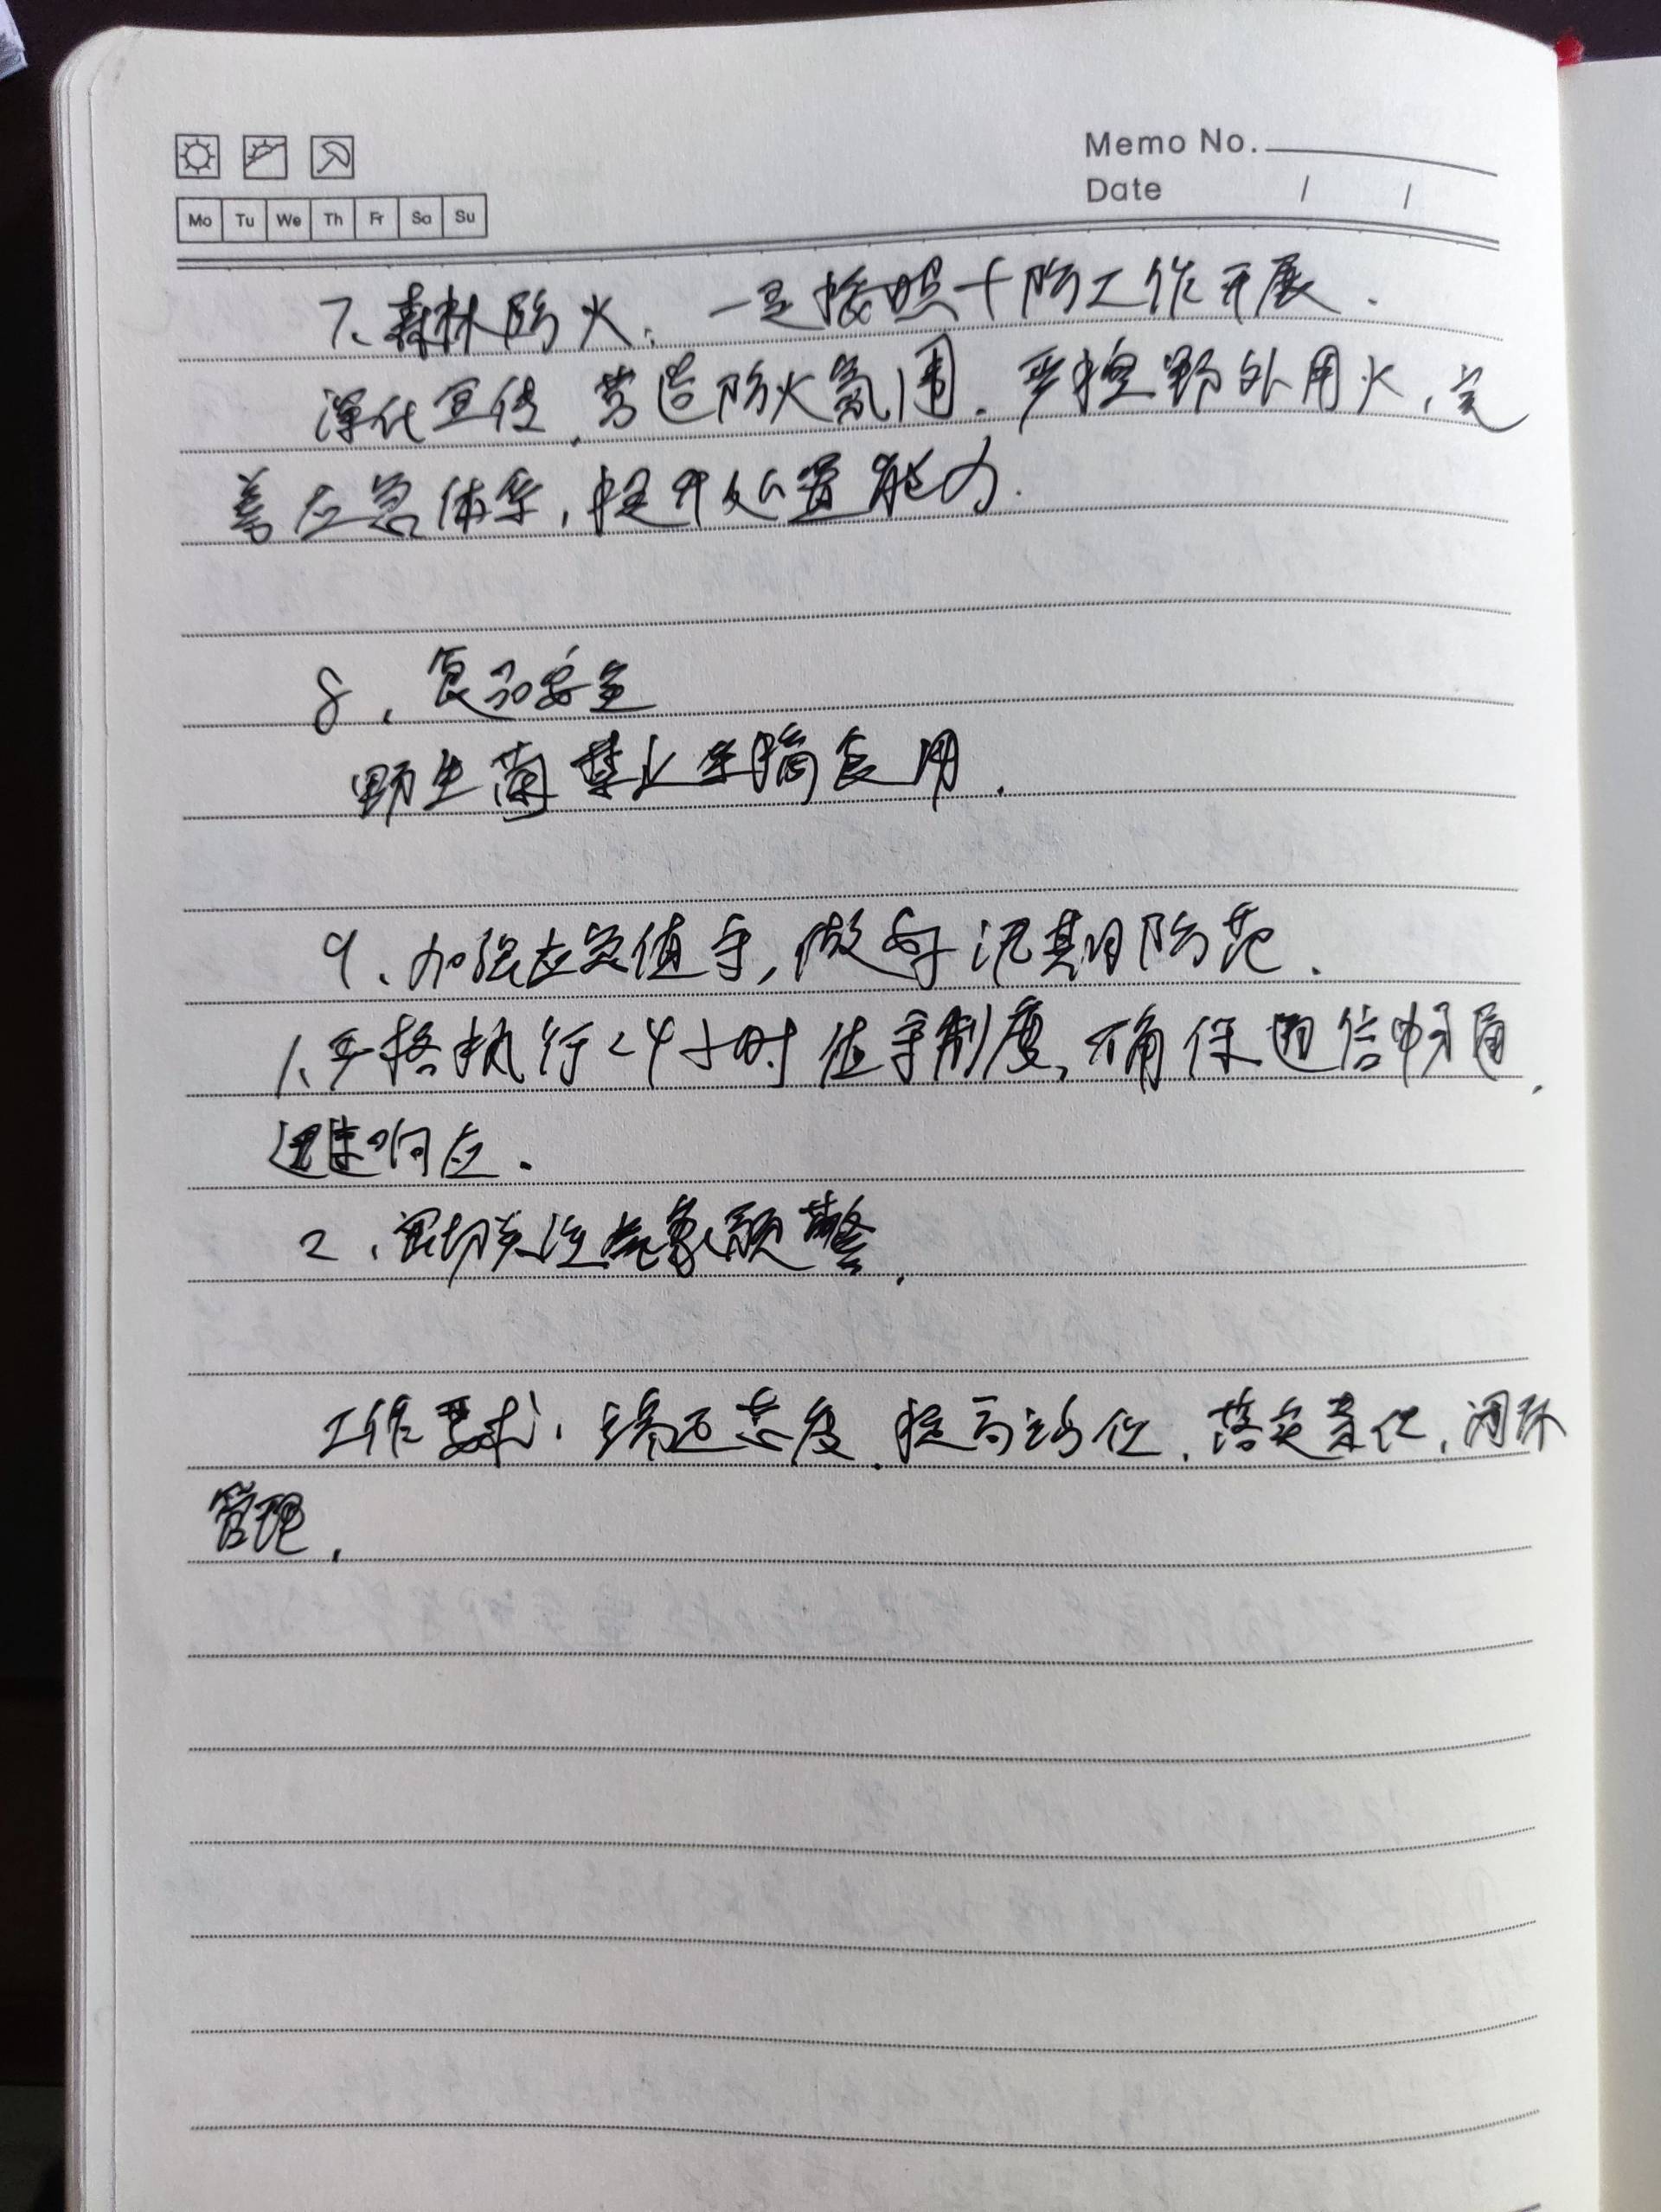 Memo No.
Date / /
Mo Tu We Th Fr Sa Su
7、森林防火：一是按照十防工作开展.
深化宣传,营造防火氛围.严控野外用火,完
善应急体系,提升处置能力.
8、食品安全
野生菌禁止采摘食用.
9、加强应急值守,做好汛期防范.
1、严格执行24小时值守制度,确保通信畅通,
迅速响应.
2、密切关注气象预警.
工作要求：端正态度,提高站位,落实责任,闭环
管理.